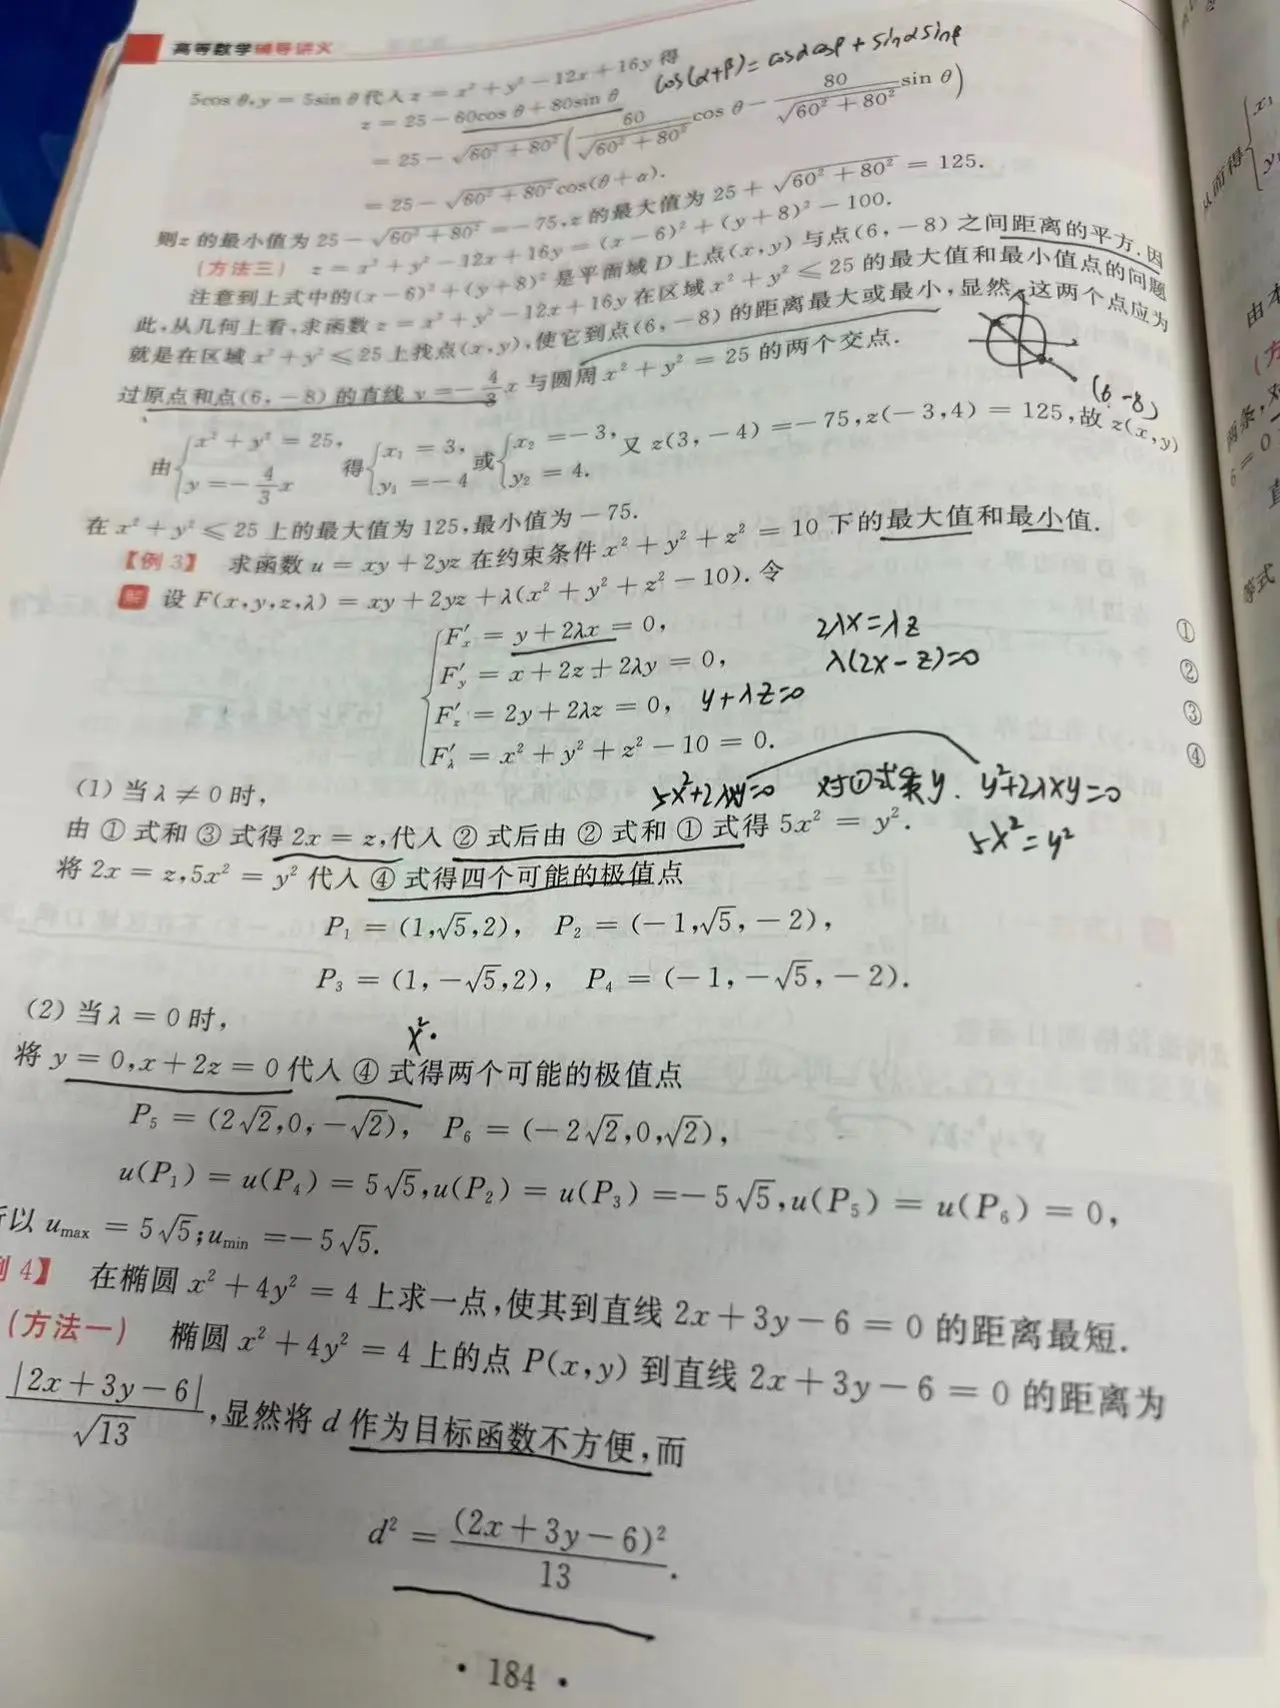 高等数学辅导讲义
5cos θ,y = 5sin θ代入 z = x² + y² − 12x + 16y 得
cos(α+β)= cosαcosβ + sinαsinβ
z = 25 − 60cos θ + 80sin θ
= 25 − √(60² + 80²) (60/√(60² + 80²) cos θ − 80/√(60² + 80²) sin θ)
= 25 − √(60² + 80²) cos(θ + α).
则 z 的最小值为 25 − √(60² + 80²) = −75,z 的最大值为 25 + √(60² + 80²) = 125.
(方法三) z = x² + y² − 12x + 16y = (x − 6)² + (y + 8)² − 100.
注意到上式中的(x − 6)² + (y + 8)² 是平面域 D 上点(x,y) 与点(6, − 8) 之间距离的平方.因
此,从几何上看,求函数 z = x² + y² − 12x + 16y 在区域 x² + y² ≤ 25 的最大值和最小值点的问题
就是在区域 x² + y² ≤ 25 上找点(x,y),使它到点(6, − 8) 的距离最大或最小,显然,这两个点应为
过原点和点(6, − 8) 的直线 y = − 4/3 x 与圆周 x² + y² = 25 的两个交点.
(6,-8)
由 { x² + y² = 25, y = − 4/3 x 得 { x₁ = 3, y₁ = − 4 或 { x₂ = − 3, y₂ = 4. 又 z(3, − 4) = − 75,z(− 3,4) = 125,故 z(x,y)
在 x² + y² ≤ 25 上的最大值为 125,最小值为 − 75.
【例 3】 求函数 u = xy + 2yz 在约束条件 x² + y² + z² = 10 下的最大值和最小值.
解 设 F(x,y,z,λ) = xy + 2yz + λ(x² + y² + z² − 10). 令
F′ₓ = y + 2λx = 0, 2λx=λz ①
F′y = x + 2z + 2λy = 0, λ(2x−z)=0 ②
F′z = 2y + 2λz = 0, y+λz=0 ③
F′λ = x² + y² + z² − 10 = 0. ④
(1) 当 λ ≠ 0 时,
5x²+2λxy=0 对①式乘y. y²+2λxy=0
由 ① 式和 ③ 式得 2x = z,代入 ② 式后由 ② 式和 ① 式得 5x² = y².
5x²=y²
将 2x = z,5x² = y² 代入 ④ 式得四个可能的极值点
P₁ = (1,√5,2), P₂ = (− 1,√5, − 2),
P₃ = (1, − √5,2), P₄ = (− 1, − √5, − 2).
(2) 当 λ = 0 时,
x².
将 y = 0,x + 2z = 0 代入 ④ 式得两个可能的极值点
P₅ = (2√2,0, − √2), P₆ = (− 2√2,0,√2),
u(P₁) = u(P₄) = 5√5,u(P₂) = u(P₃) = − 5√5,u(P₅) = u(P₆) = 0,
所以 uₘₐₓ = 5√5;uₘᵢₙ = − 5√5.
例 4】 在椭圆 x² + 4y² = 4 上求一点,使其到直线 2x + 3y − 6 = 0 的距离最短.
(方法一) 椭圆 x² + 4y² = 4 上的点 P(x,y) 到直线 2x + 3y − 6 = 0 的距离为
|2x + 3y − 6|/√13,显然将 d 作为目标函数不方便,而
d² = (2x + 3y − 6)²/13.
· 184 ·
从而得 { x₁ y₁
由本
(方
两条,对
6 = 0
直
等式